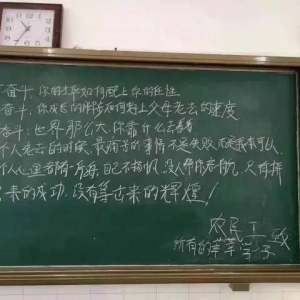 奋斗，你的才华如何配上你的任性
奋斗，你成长的脚步如何赶上父母老去的速度
奋斗，世界那么大，你靠什么去看看
个人老去的时候，最痛苦的事情不是失败，不是我本可以
个人，里都有一片海，自己不扬帆，没人帮你启航，只有拼
来的成功，没有等出来的辉煌！
农民工致
所有的莘莘学子